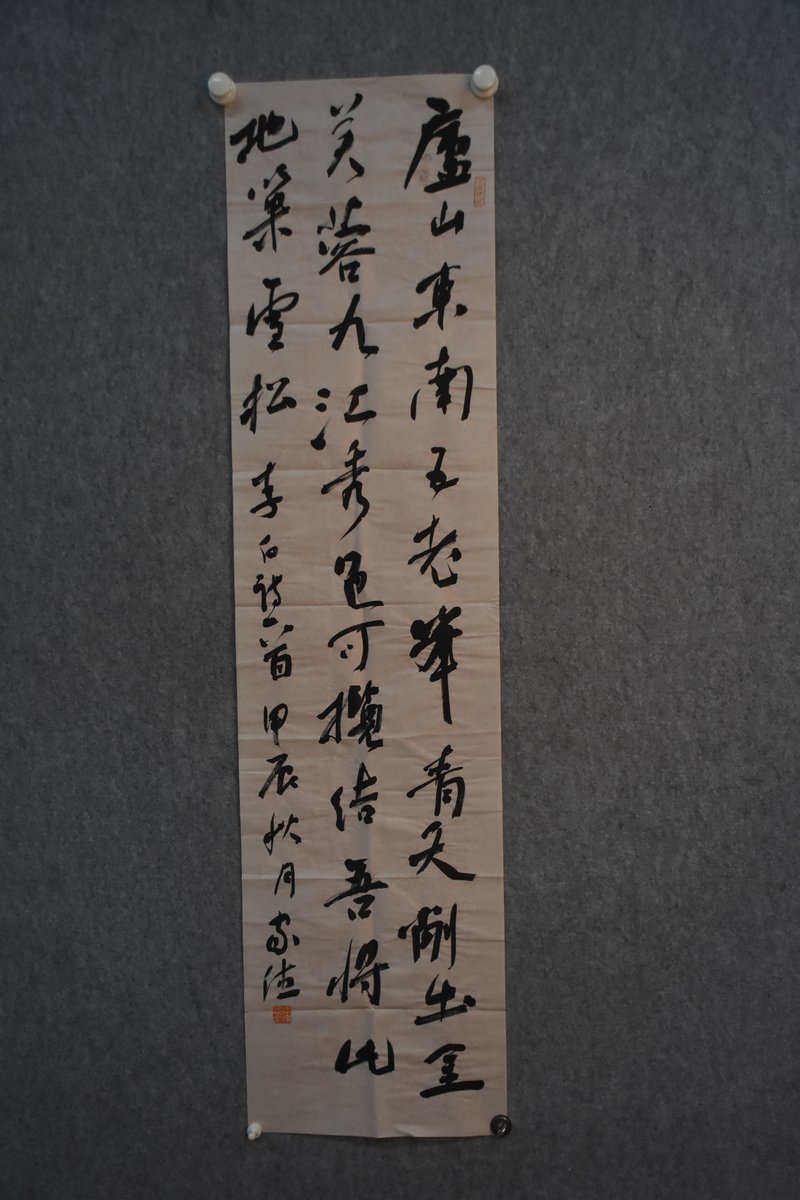 廬山東南五老峯青天削出金
芙蓉九江秀色可攬結吾將此
地巢雲松 李白詩一首 甲辰秋月 家德